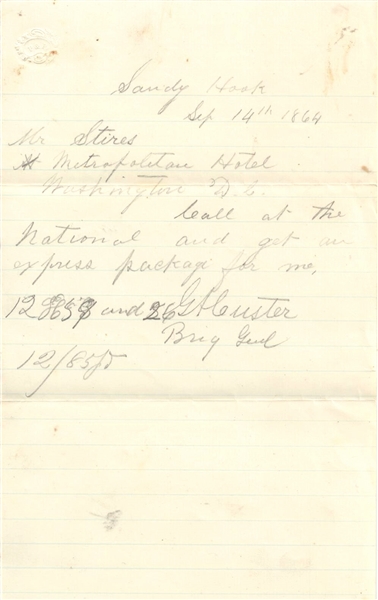 Sandy Hook
Sep 14th 1864
Mr Stires
Metropolitan Hotel
Washington D.C.
Call at the
National and get an
express package for me,
and 26 GACuster
Brig Genl